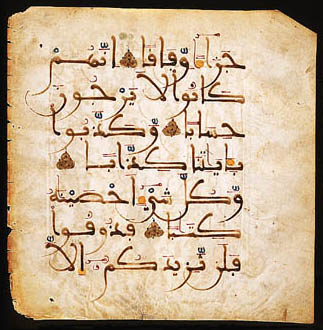 جَزَآءً وِّفَاقًا اِنَّهُمْ
كَانُوا لَا يَرْجُونَ
حِسَابًا وَّكَذَّبُوا
بِـَٔايَٰتِنَا كِذَّابًا
وَّكُلَّ شَيْءٍ اَحْصَيْنَٰهُ
كِتَٰبًا فَذُوقُوا
فَلَن نَّزِيدَكُمْ إِلَّا